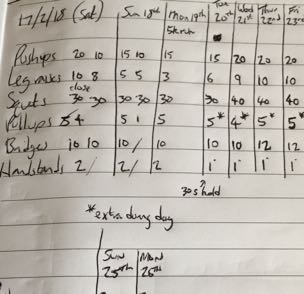 17/2/18 (Sat) Sun 18th Mon 19th Tue 20th Wed 21st Thur 22nd Fri 23rd
5k run
Pushups 20 10 15 10 15 15 20 20 20
Leg raises 10 8 5 5 3 6 9 10 10
close
Squats 30 30 30 30 30 30 40 40 40
Pullups 5 4 5 1 5 5* 4* 5* 5*
Bridges 10 10 10 / 10 10 10 12 12
Handstands 2 / 2 / 2 1 1 1 1
30s hold
*extra during day
Sun 25th Mon 26th